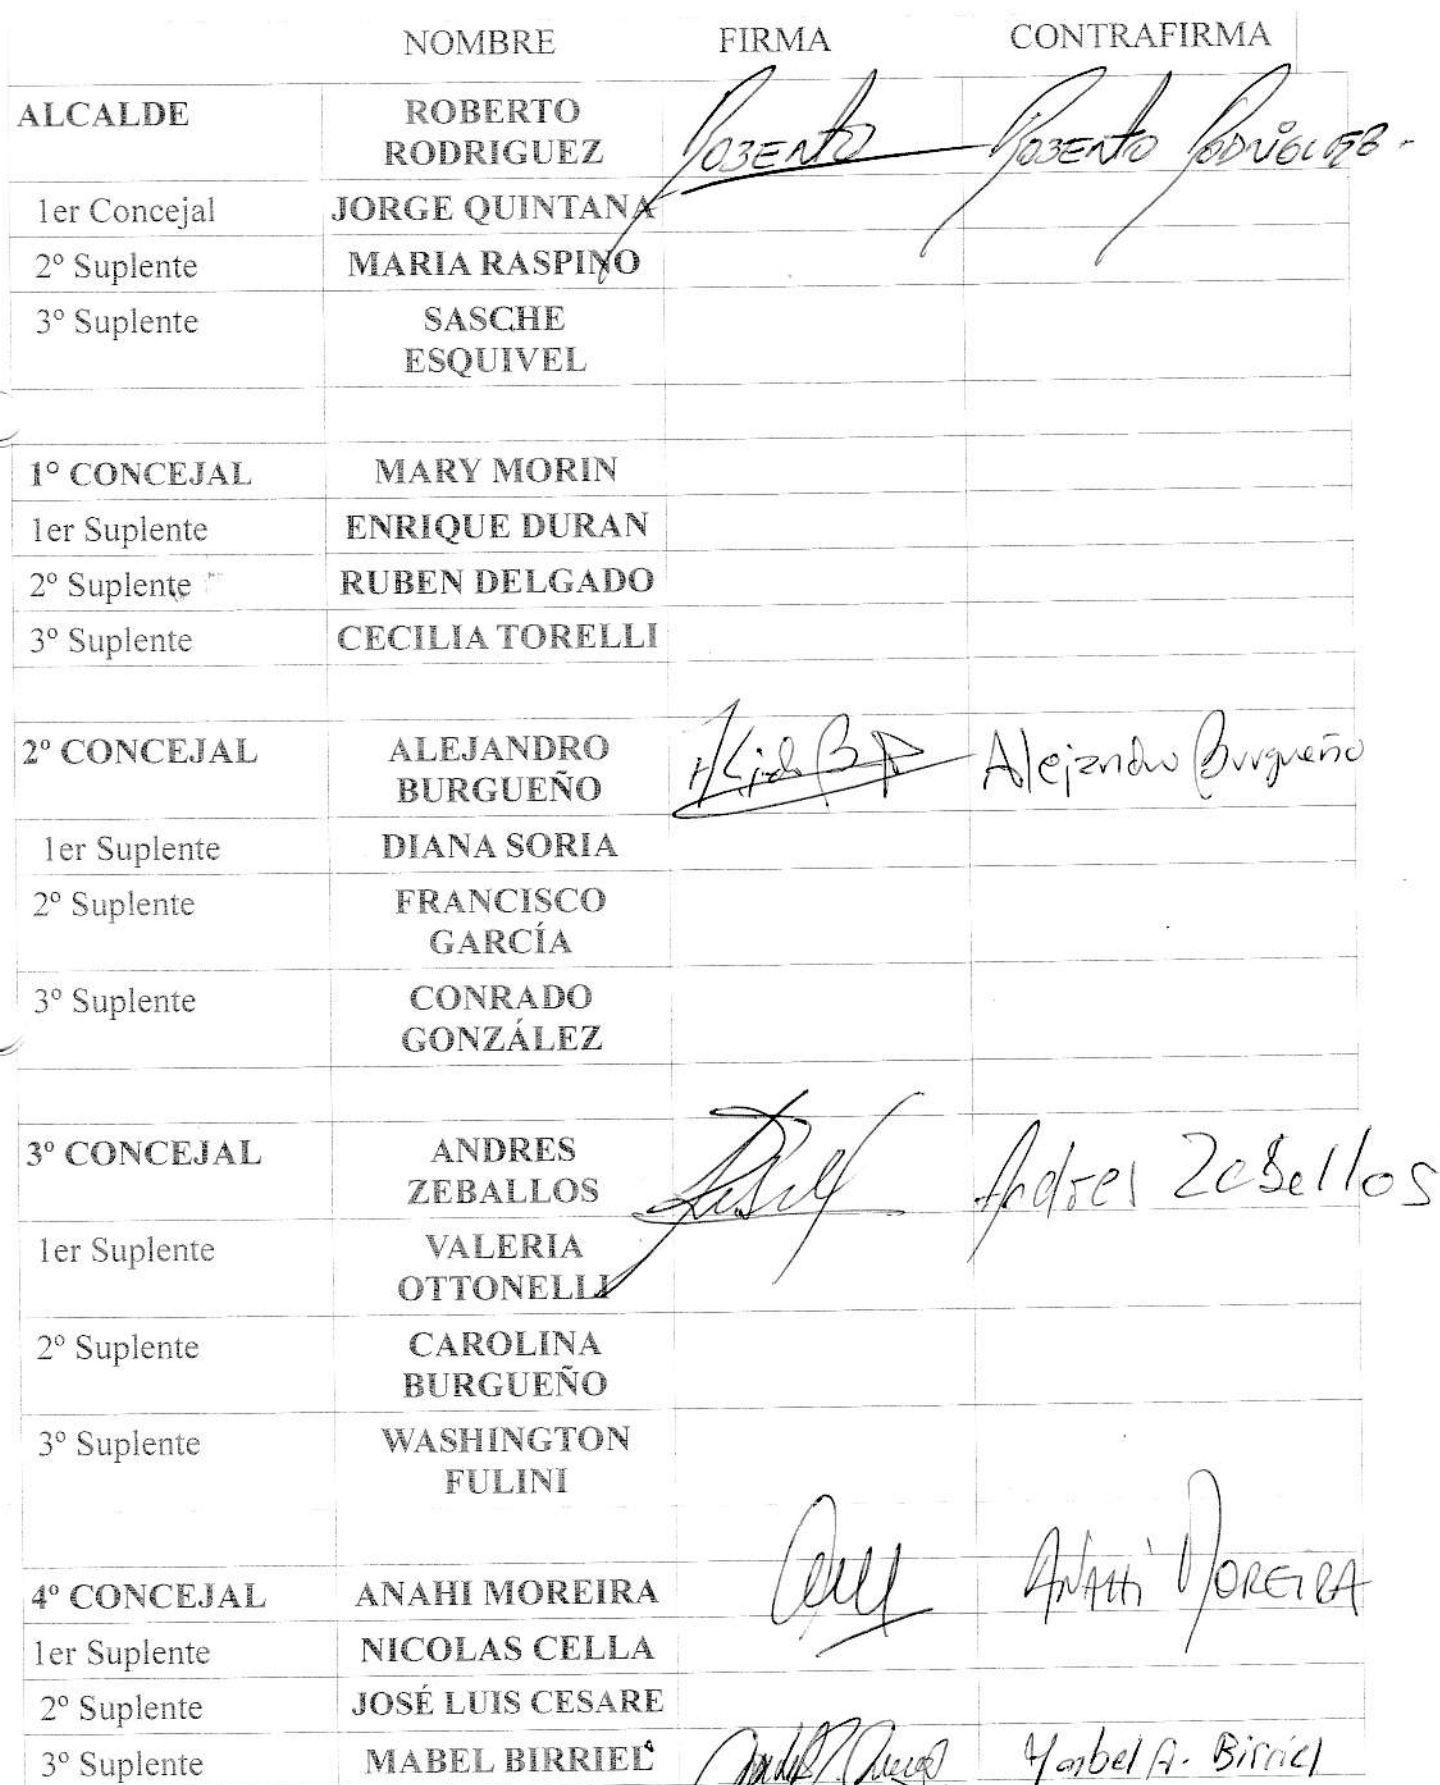 NOMBRE FIRMA CONTRAFIRMA
ALCALDE ROBERTO Roberto Roberto Rodriguez.
RODRIGUEZ
1er Concejal JORGE QUINTANA
2º Suplente MARIA RASPINO
3º Suplente SASCHE
ESQUIVEL
1º CONCEJAL MARY MORIN
1er Suplente ENRIQUE DURAN
2º Suplente RUBEN DELGADO
3º Suplente CECILIA TORELLI
2º CONCEJAL ALEJANDRO Alejandro Burgueño
BURGUEÑO
1er Suplente DIANA SORIA
2º Suplente FRANCISCO
GARCÍA
3º Suplente CONRADO
GONZÁLEZ
3º CONCEJAL ANDRES Andres Zeballos
ZEBALLOS
1er Suplente VALERIA
OTTONELLI
2º Suplente CAROLINA
BURGUEÑO
3º Suplente WASHINGTON
FULINI
4º CONCEJAL ANAHI MOREIRA ANAHI MOREIRA
1er Suplente NICOLAS CELLA
2º Suplente JOSÉ LUIS CESARE
3º Suplente MABEL BIRRIEL Mabel A. Birriel